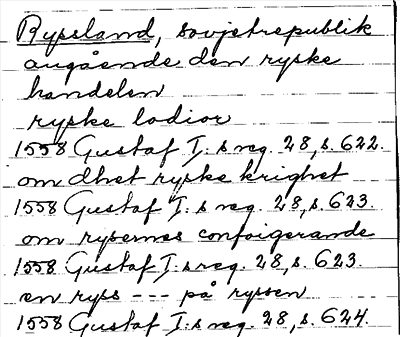 Ryssland, sovjetrepublik
angående den ryske
handelen
ryske lodior
1558 Gustaf I:s reg. 28, s. 622.
om dhet ryske krighet
1558 Gustaf I:s reg. 28, s. 623.
om rysernes confoigerande
1558 Gustaf I:s reg. 28, s. 623.
en ryss --- på ryssen
1558 Gustaf I:s reg. 28, s. 624.